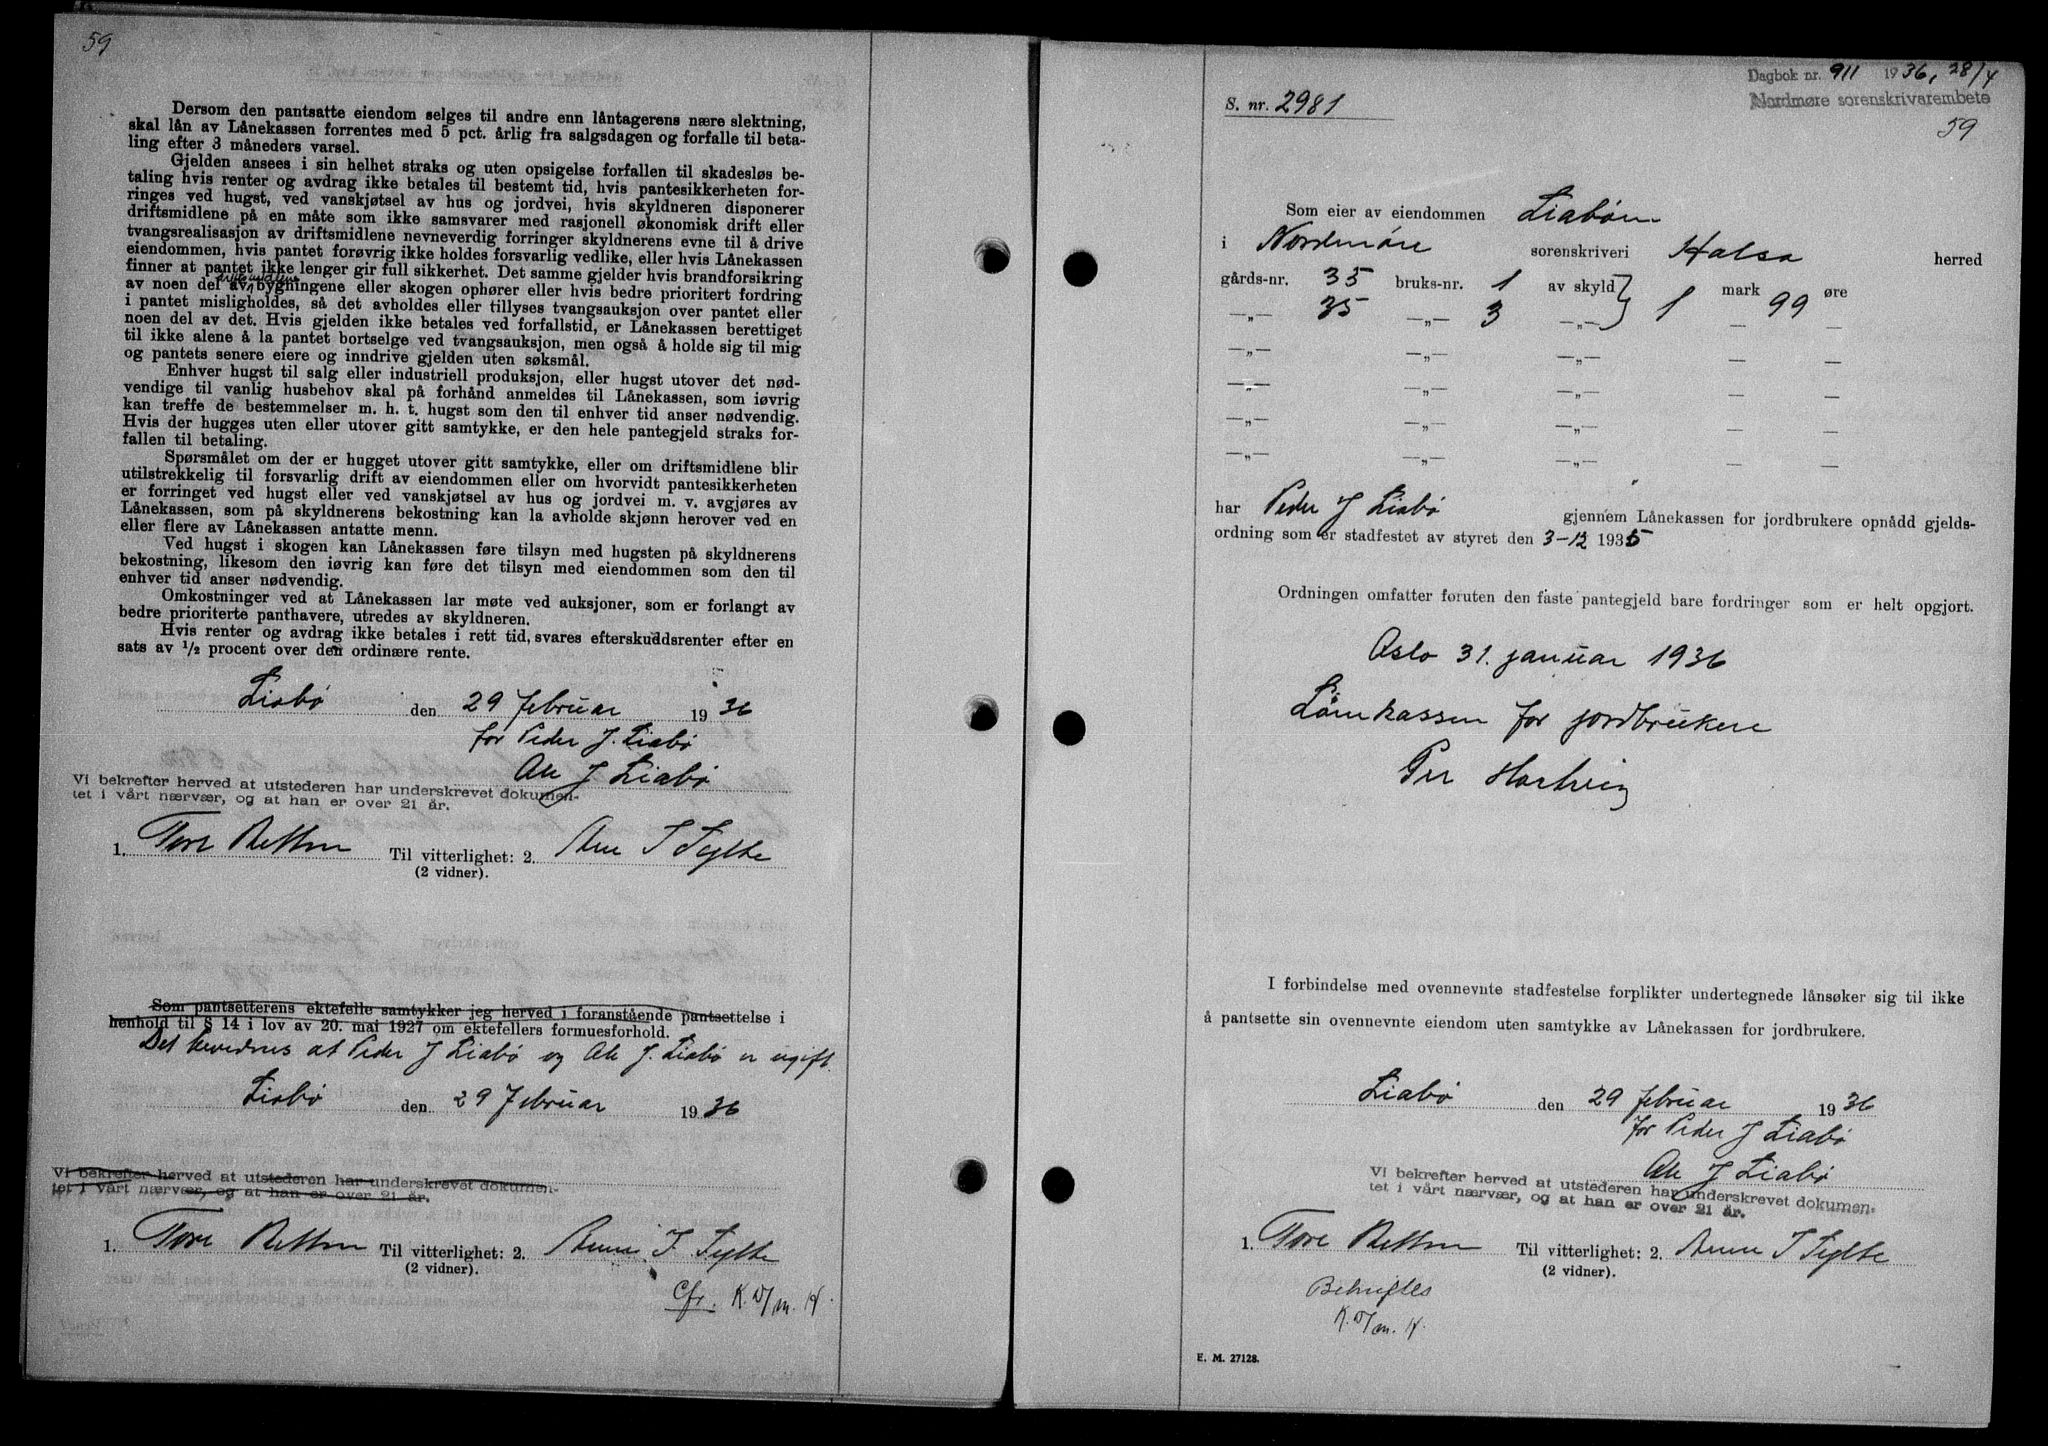 59
Dersom den pantsatte eiendom selges til andre enn låntagerens nære slektning,
skal lån av Lånekassen forrentes med 5 pct. årlig fra salgsdagen og forfalle til beta-
ling efter 3 måneders varsel.
Gjelden ansees i sin helhet straks og uten opsigelse forfallen til skadesløs be-
taling hvis renter og avdrag ikke betales til bestemt tid, hvis pantesikkerheten for-
ringes ved hugst, ved vanskjøtsel av hus og jordvei, hvis skyldneren disponerer
driftsmidlene på en måte som ikke samsvarer med rasjonell økonomisk drift eller
tvangsrealisasjon av driftsmidlene nevneverdig forringer skyldnerens evne til å drive
eiendommen, hvis pantet forøvrig ikke holdes forsvarlig vedlike, eller hvis Lånekassen
finner at pantet ikke lenger gir full sikkerhet. Det samme gjelder hvis brandforsikring
av noen del av bygningene eller skogen ophører eller hvis bedre prioritert fordring
i pantet misligholdes, så det avholdes eller tillyses tvangsauksjon over pantet eller
noen del av det. Hvis gjelden ikke betales ved forfallstid, er Lånekassen berettiget
til ikke alene å la pantet bortselge ved tvangsauksjon, men også å holde sig til mig
og pantets senere eiere og inndrive gjelden uten søksmål.
Enhver hugst til salg eller industriell produksjon, eller hugst utover det nød-
vendige til vanlig husbehov skal på forhånd anmeldes til Lånekassen, som iøvrig
kan treffe de bestemmelser m. h. t. hugst som den til enhver tid anser nødvendig.
Hvis der hugges uten eller utover gitt samtykke, er den hele pantegjeld straks for-
fallen til betaling.
Spørsmålet om der er hugget utover gitt samtykke, eller om driftsmidlene blir
utilstrekkelig til forsvarlig drift av eiendommen eller om hvorvidt pantesikkerheten
er forringet ved hugst eller ved vanskjøtsel av hus og jordvei m. v. avgjøres av
Lånekassen, som på skyldnerens bekostning kan la avholde skjønn herover ved en
eller flere av Lånekassen antatte menn.
Ved hugst i skogen kan Lånekassen føre tilsyn med hugsten på skyldnerens
bekostning, likesom den iøvrig kan føre det tilsyn med eiendommen som den til
enhver tid anser nødvendig.
Omkostninger ved at Lånekassen lar møte ved auksjoner, som er forlangt av
bedre prioriterte panthavere, utredes av skyldneren.
Hvis renter og avdrag ikke betales i rett tid, svares efterskuddsrenter efter en
sats av 1/2 procent over den ordinære rente.
Liabø den 29 februar 1936
for Peder J. Liabø
Ale J Liabø
Vi bekrefter herved at utstederen har underskrevet dokumen-
tet i vårt nærvær, og at han er over 21 år.
1. Tore Betten Til vitterlighet: 2. Ane I Tylte
(2 vidner).
Som pantsetterens ektefelle samtykker jeg herved i foranstående pantsettelse i
henhold til § 14 i lov av 20. mai 1927 om ektefellers formuesforhold.
Det bevidnes at Peder J Liabø og Ale J. Liabø er ugift.
Liabø den 29 februar 1936
Vi bekrefter herved at utstederen har underskrevet dokumen-
tet i vårt nærvær, og at han er over 21 år.
1. Tore Betten Til vitterlighet: 2. Anne I. Tylte
(2 vidner).
Cfr.
Dagbok nr. 911 1936, 28/4
Nordmøre sorenskrivarembete
S. nr. 2981
59
Som eier av eiendommen Liabøen
i Nordmøre sorenskriveri Halsa herred
gårds-nr. 35 bruks-nr. 1 av skyld } 1 mark 99 øre
—„— 35 —„— 3 —„— — —
—„— —„— —„— — —
—„— —„— —„— — —
—„— —„— —„— — —
—„— —„— —„— — —
har Peder J Liabø gjennem Lånekassen for jordbrukere opnådd gjelds-
ordning som er stadfestet av styret den 3-12 1935
Ordningen omfatter foruten den faste pantegjeld bare fordringer som er helt opgjort.
Oslo 31. januar 1936
Lånekassen for jordbrukere
Per Hartvig
I forbindelse med ovennevnte stadfestelse forplikter undertegnede lånsøker sig til ikke
å pantsette sin ovennevnte eiendom uten samtykke av Lånekassen for jordbrukere.
Liabø den 29 februar 1936
for Peder J Liabø
Ale J Liabø
Vi bekrefter herved at utstederen har underskrevet dokumen-
tet i vårt nærvær, og at han er over 21 år.
1. Tore Betten Til vitterlighet: 2. Anne I Tylte
(2 vidner).
E. M. 27128.